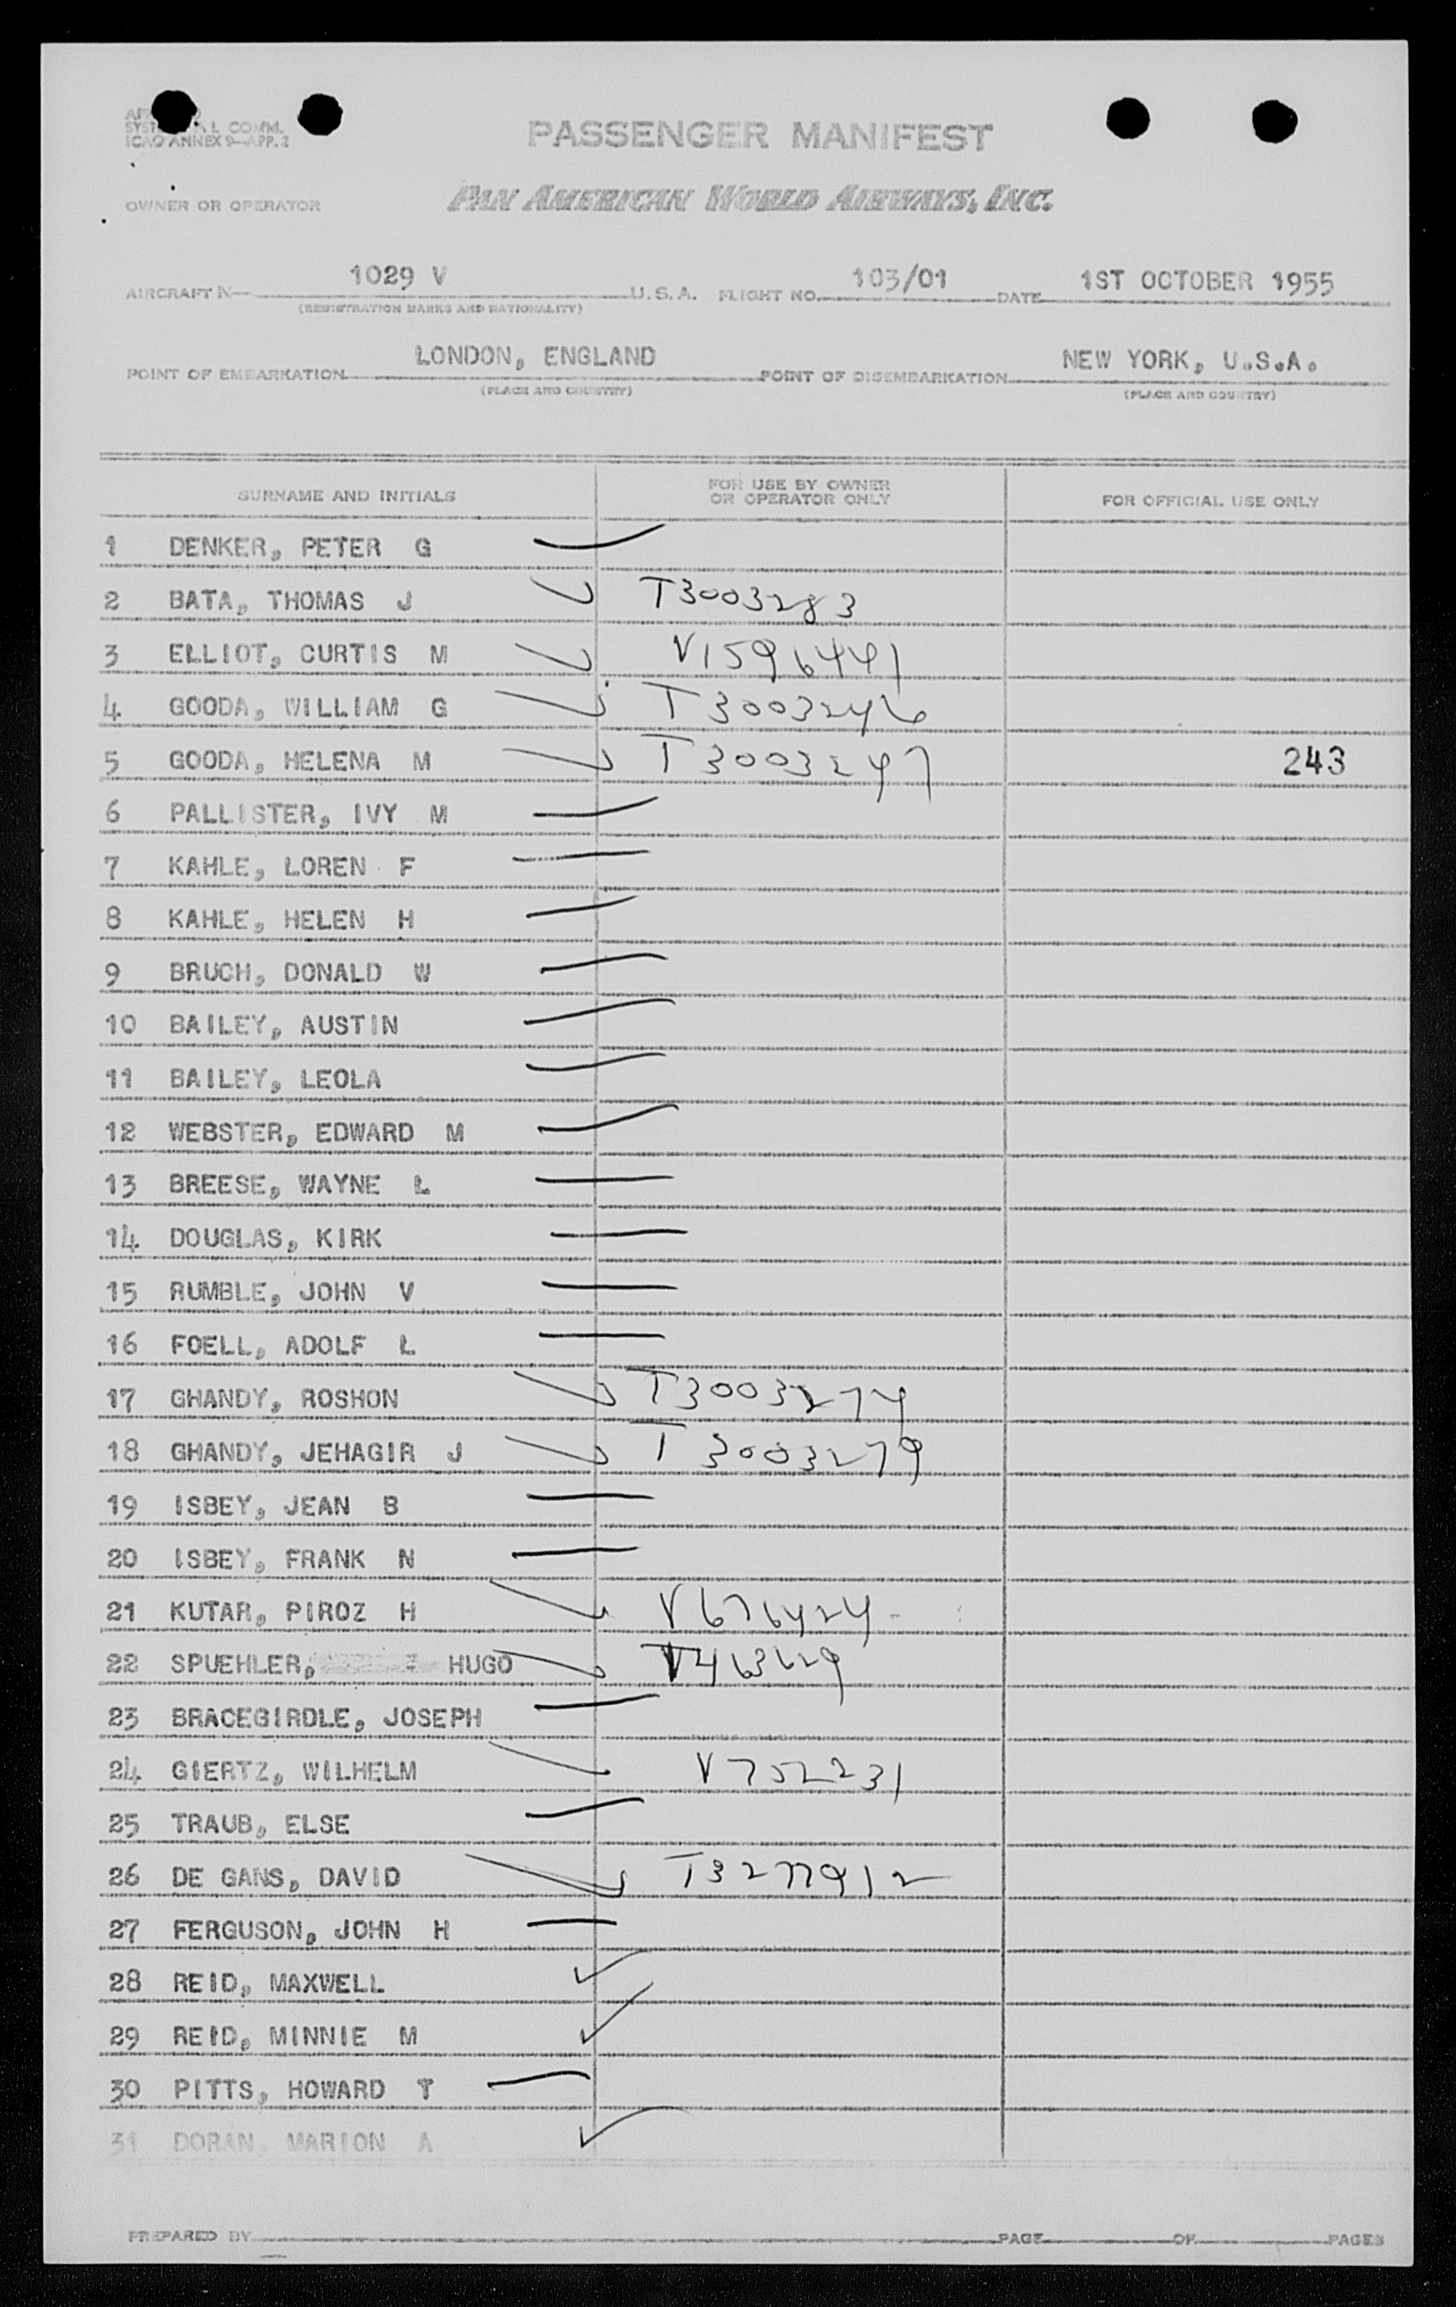 SYST L COMM.
ICAO ANNEX 9—APP. 2
PASSENGER MANIFEST
OWNER OR OPERATOR PAN AMERICAN WORLD AIRWAYS, INC.
AIRCRAFT N— 1029 V U.S.A. FLIGHT NO. 103/01 DATE 1ST OCTOBER 1955
(REGISTRATION MARKS AND NATIONALITY)
POINT OF EMBARKATION LONDON, ENGLAND POINT OF DISEMBARKATION NEW YORK, U.S.A.
(PLACE AND COUNTRY) (PLACE AND COUNTRY)
SURNAME AND INITIALS FOR USE BY OWNER OR OPERATOR ONLY FOR OFFICIAL USE ONLY
1 DENKER, PETER G
2 BATA, THOMAS J T3003283
3 ELLIOT, CURTIS M V1596441
4 GOODA, WILLIAM G T3003246
5 GOODA, HELENA M T3003247 243
6 PALLISTER, IVY M
7 KAHLE, LOREN F
8 KAHLE, HELEN H
9 BRUCH, DONALD W
10 BAILEY, AUSTIN
11 BAILEY, LEOLA
12 WEBSTER, EDWARD M
13 BREESE, WAYNE L
14 DOUGLAS, KIRK
15 RUMBLE, JOHN V
16 FOELL, ADOLF L
17 GHANDY, ROSHON T3003274
18 GHANDY, JEHAGIR J T3003279
19 ISBEY, JEAN B
20 ISBEY, FRANK N
21 KUTAR, PIROZ H V676424
22 SPUEHLER, HUGO V463629
23 BRACEGIRDLE, JOSEPH
24 GIERTZ, WILHELM V752231
25 TRAUB, ELSE
26 DE GANS, DAVID T3277912
27 FERGUSON, JOHN H
28 REID, MAXWELL
29 REID, MINNIE M
30 PITTS, HOWARD T
31 DORAN, MARION A
PREPARED BY PAGE OF PAGES